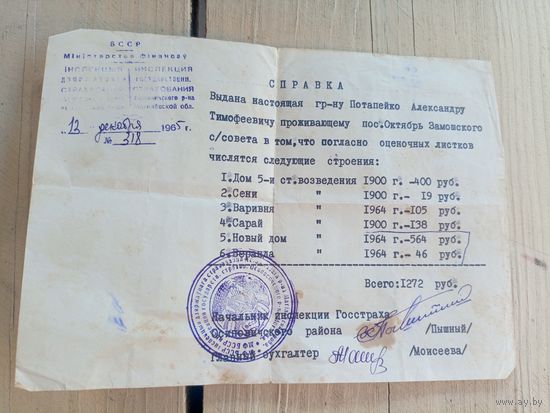 БССР
Міністэрства Фінансаў
ІНСПЕКЦЫЯ ИНСПЕКЦИЯ
ГОСУДАРСТВЕНН.
СТРАХОВАНИЯ
р-на
обл.
"13" декабря 1965 г.
№ 318
СПРАВКА
Выдана настоящая гр-ну Потапейко Александру
Тимофеевичу проживающему пос.Октябрь Замошского
с/совета в том,что согласно оценочных листков
числятся следующие строения:
1.Дом 5-и ст.возведения 1900 г. -400 руб.
2.Сени " 1900 г.- 19 руб.
3.Варивня " 1964 г.-105 руб.
4.Сарай " 1900 г.-138 руб.
5.Новый дом " 1964 г.-564 руб.
6.Веранда " 1964 г.- 46 руб.
Всего:1272 руб.
Начальник инспекции Госстраха
Осиповичского района /Пышный/
Главный бухгалтер /Моисеева/
www.ay.by